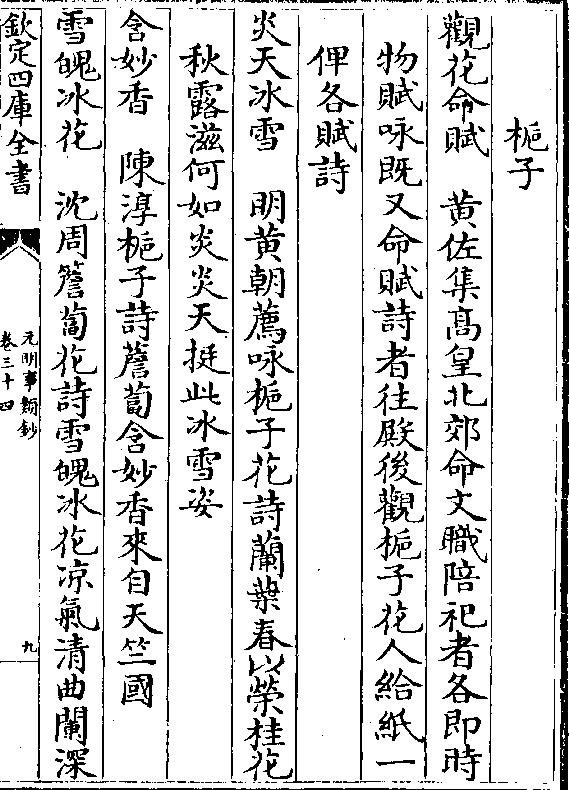 梔子
觀花命賦　黄佐集髙皇北郊命文職陪祀者各即時
物賦咏既又命賦詩者往殿後觀梔子花人給紙一
俾各賦詩
炎天冰雪　明黄朝薦咏梔子花詩蘭葉春以榮桂花
秋露滋何如炎炎天挺此冰雪姿
含妙香　陳淳梔子詩薝蔔含妙香來自天竺國
雪魄冰花　沈周薝蔔花詩雪魄冰花凉氣清曲闌深
欽定四庫全書
元明事類鈔
卷三十四
九